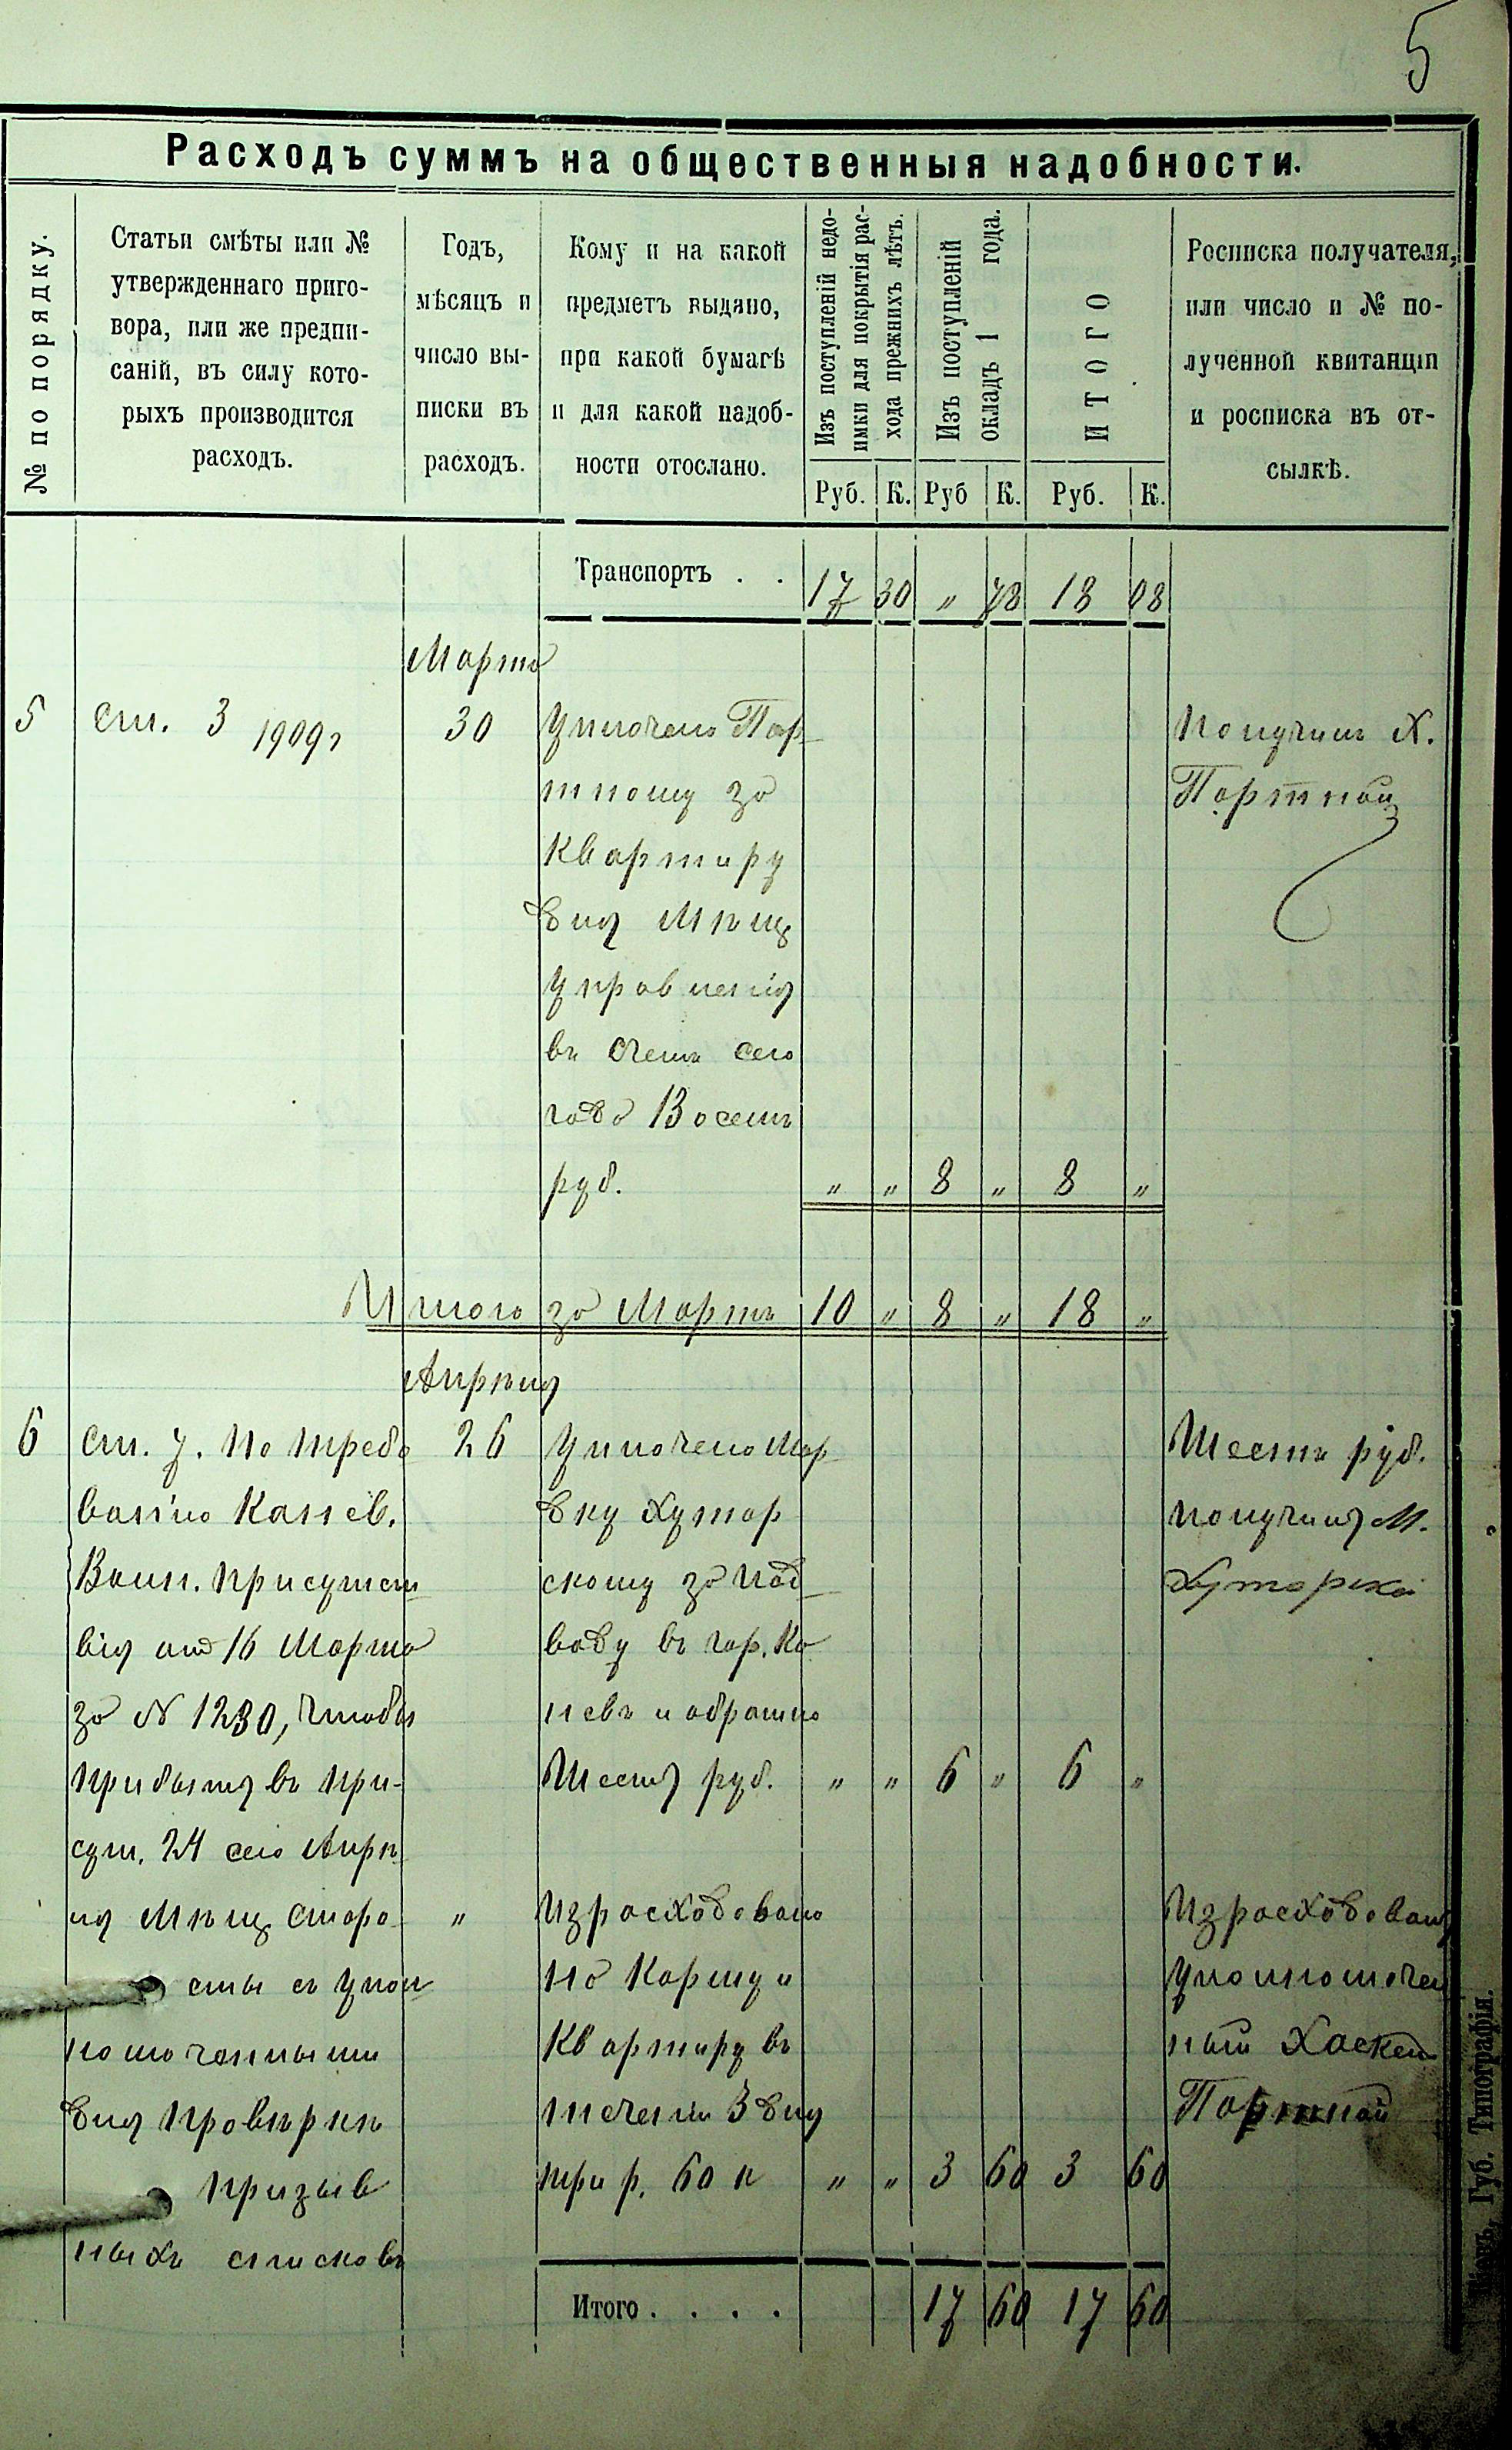 5
Расходъ суммъ на общественныя надобности.
№ по порядку.
Статьи смѣты или №
утвержденнаго приго-
вора, или же предпи-
саній, въ силу кото-
рыхъ производится
расходъ.
Годъ,
мѣсяцъ и
число вы-
писки въ
расходъ.
Кому и на какой
предметъ выдано,
при какой бумагѣ
и для какой надоб-
ности отослано.
Изъ поступленій недо-
имки для покрытія рас-
хода прежнихъ лѣтъ.
Изъ поступленій
окладъ 1 года.
ИТОГО
Росписка получателя,
или число и № по-
лученной квитанціи
и росписка въ от-
сылкѣ.
Руб. К. Руб К. Руб. К.
Транспортъ . . 17 30 „ 78 18 08
Марта
5 Ст. 3 1909г 30
Уплочено Пор-
тному за
квартиру
для Мѣщ
управленія
въ счетъ сего
года Восемь
руб. „ „ 8 „ 8 „
Получилъ Х.
Портной
Итого за Мартъ 10 „ 8 „ 18 „
Апрѣля
6 26
Ст. 7. По требо
ванію Канев.
Воин. присутст
вія отъ 16 Марта
за № 1230, чтобы
прибыть въ при-
сут. 24 сего Апрѣ
ля Мѣщ старо
сты съ упол
номоченными
для провѣрки
призыв
ныхъ списковъ
Уплочено Мор
дку Хутор
скому за под-
воду въ гор. Ка
невъ и обратно
Шесть руб. „ „ 6 „ 6 „
Шесть руб.
получилъ М.
Хуторскои
„
Израсходовано
на Кормъ и
квартиру въ
теченіи 3 дня
три р. 60 к „ „ 3 60 3 60
Израсходовалъ
уполномочен
ный Хаскель
Портной
Итого . . . . 17 60 17 60
Кіевъ, Губ. Типографія.